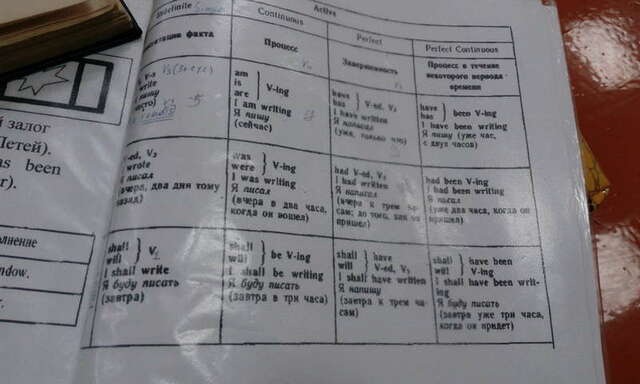 Indefinite Simple
Continuous
Active
Perfect
Perfect Continuous
констатация факта
Процесс
Завершенность
Процесс в течение
некоторого периода
времени
V-s
write
пишу
am
is
are
V-ing
I am writing
Я пишу
(сейчас)
have
has
V-ed, V₃
I have written
Я написал
(уже, только что)
have
has
been V-ing
I have been writing
Я пишу (уже час,
с двух часов)
V-ed, V₂
wrote
писал
(вчера, два дня тому
назад)
was
were
V-ing
I was writing
Я писал
(вчера в два часа,
когда он вошел)
had V-ed, V₃
I had written
Я написал
(вчера к трем ча-
сам; до того, как он
пришел)
had been V-ing
I had been writing
Я писал
(уже два часа, когда он
пришел)
shall
will
V
I shall write
Я буду писать
(завтра)
shall
will
be V-ing
I shall be writing
Я буду писать
(завтра в три часа)
shall
will
have
V-ed, V₃
I shall have written
Я напишу
(завтра к трем ча-
сам)
shall
will
have been
V-ing
I shall have been writ-
ing
Я буду писать
(завтра уже три часа,
когда он придет)
залог
Петей).
as been
er).
олнение
ndow.